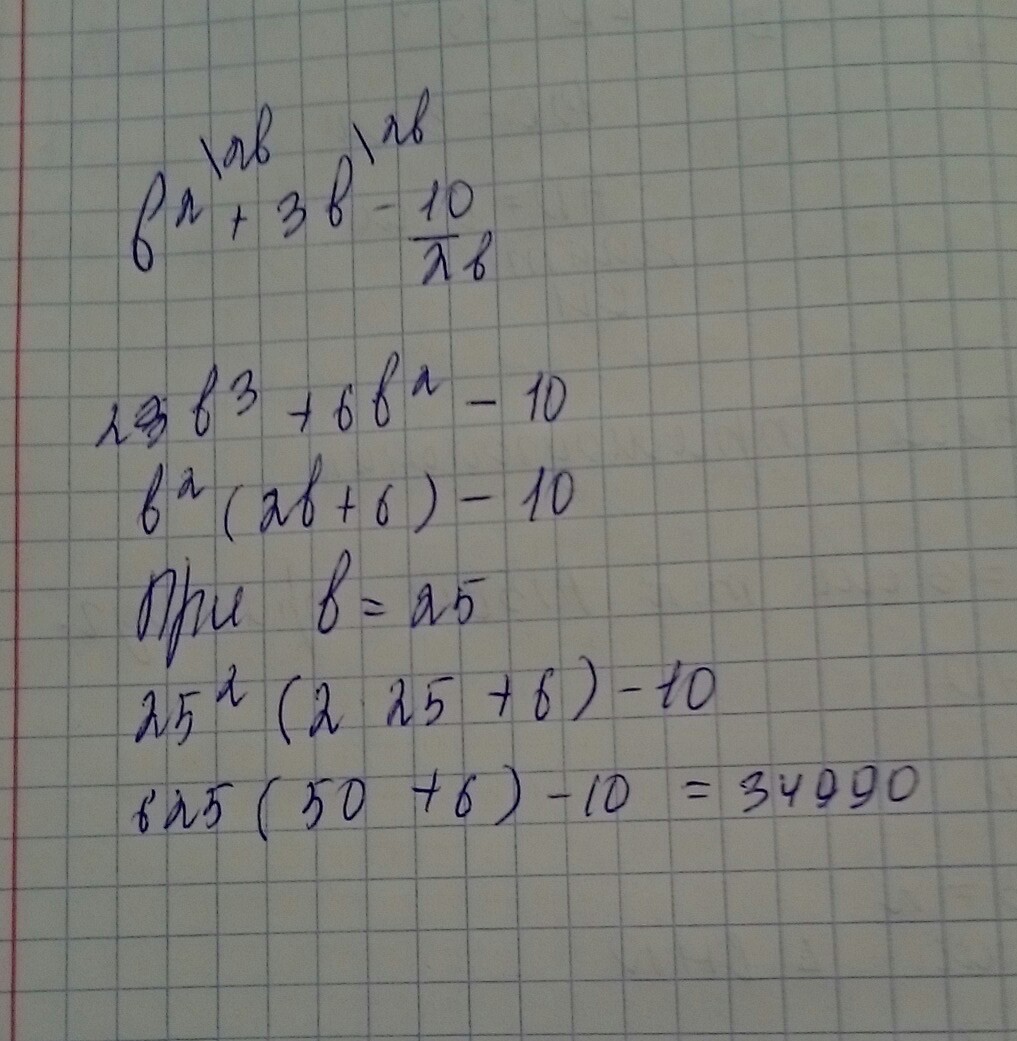 \2в \2в
в² + 3в - 10/2в
2 в³ + 6в² - 10
в² (2в + 6) - 10
При в = 25
25² (2 25 + 6) - 10
625 (50 + 6) - 10 = 34990